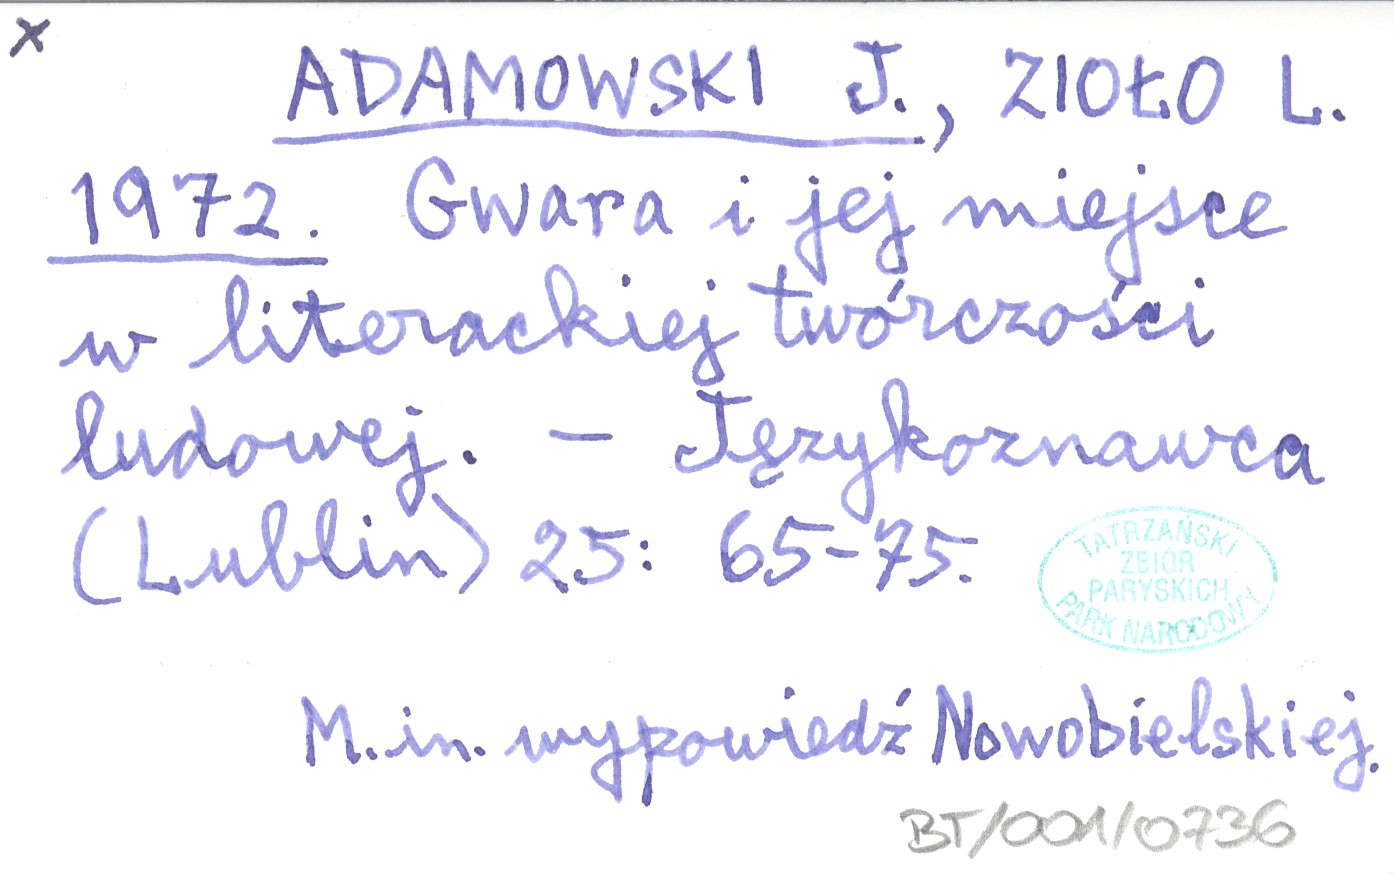 x
ADAMOWSKI J., ZIOŁO L.
1972. Gwara i jej miejsce
w literackiej twórczości
ludowej. – Językoznawca
(Lublin) 25: 65-75.
TATRZAŃSKI
ZBIÓR
PARYSKICH
PARK NARODOWY
M.in. wypowiedź Nowobielskiej.
BT/001/0736